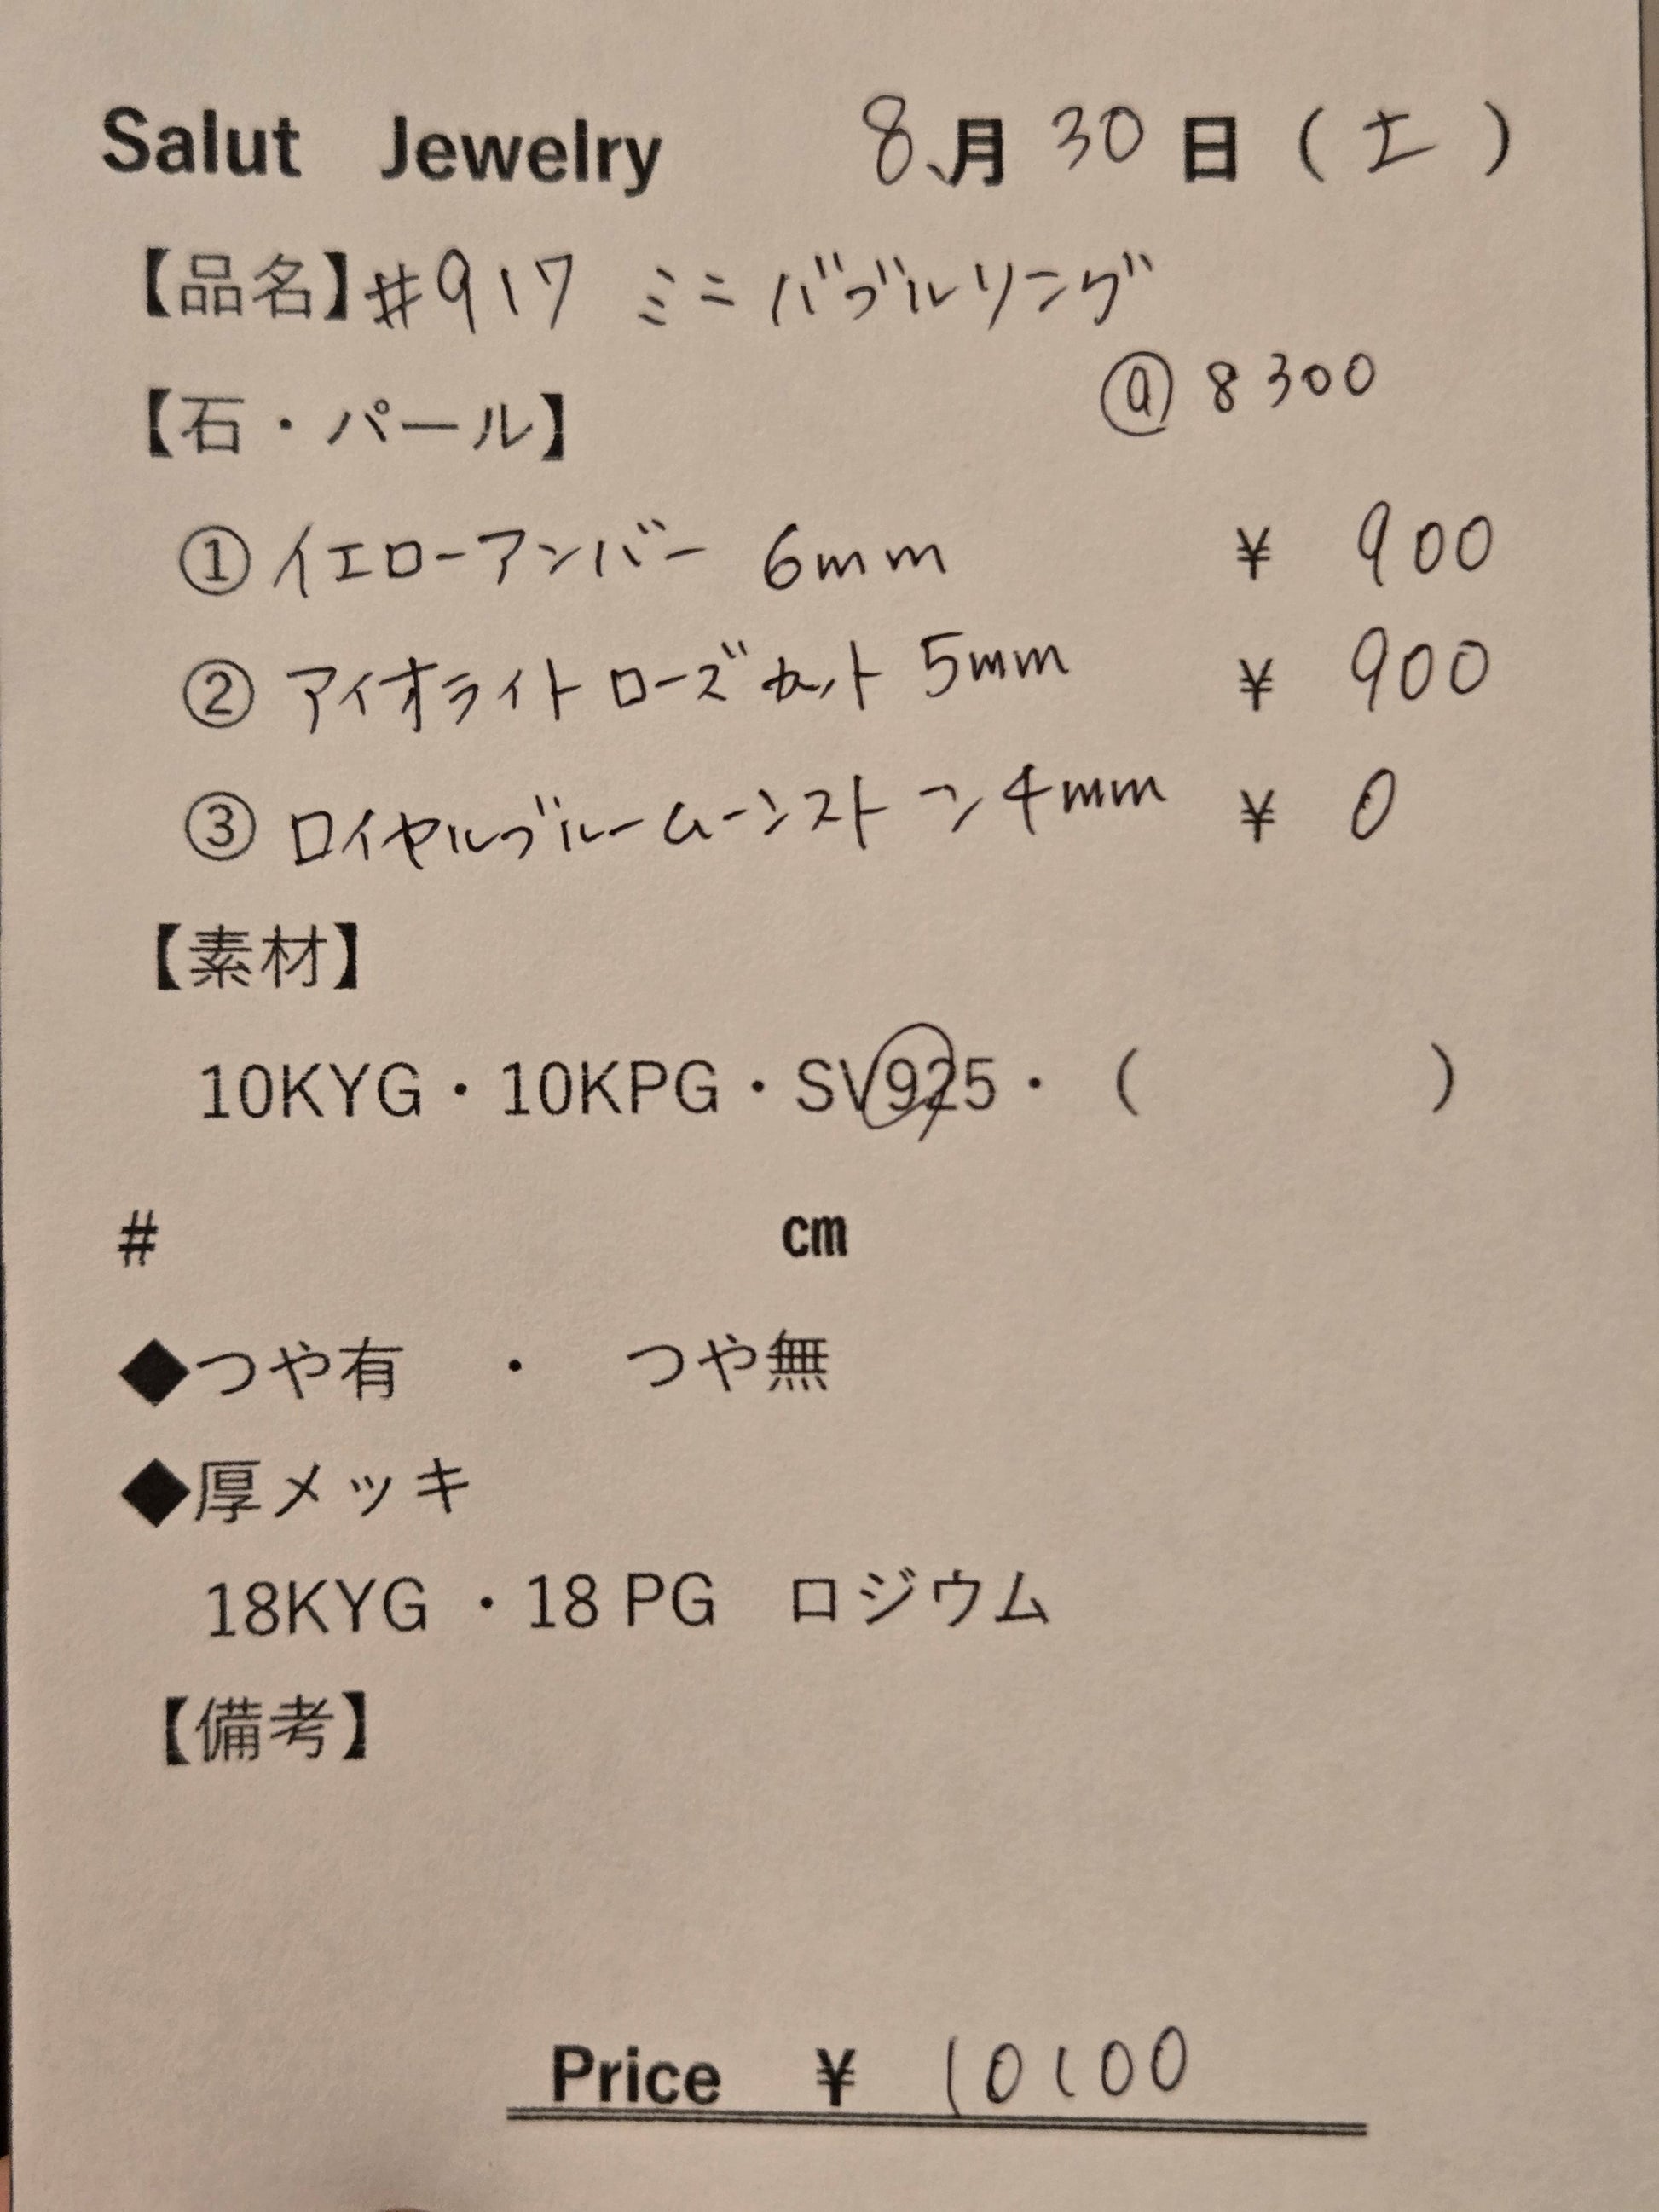 Salut Jewelry 8月30日(土)
【品名】#917 ミニバブルリング
@8300
【石・パール】
①イエローアンバー 6mm ¥ 900
②アイオライトローズカット 5mm ¥ 900
③ロイヤルブルームーンストーン4mm ¥ 0
【素材】
10KYG・10KPG・SV925・( )
# cm
◆つや有 ・ つや無
◆厚メッキ
18KYG ・18 PG ロジウム
【備考】
Price ¥ 10100